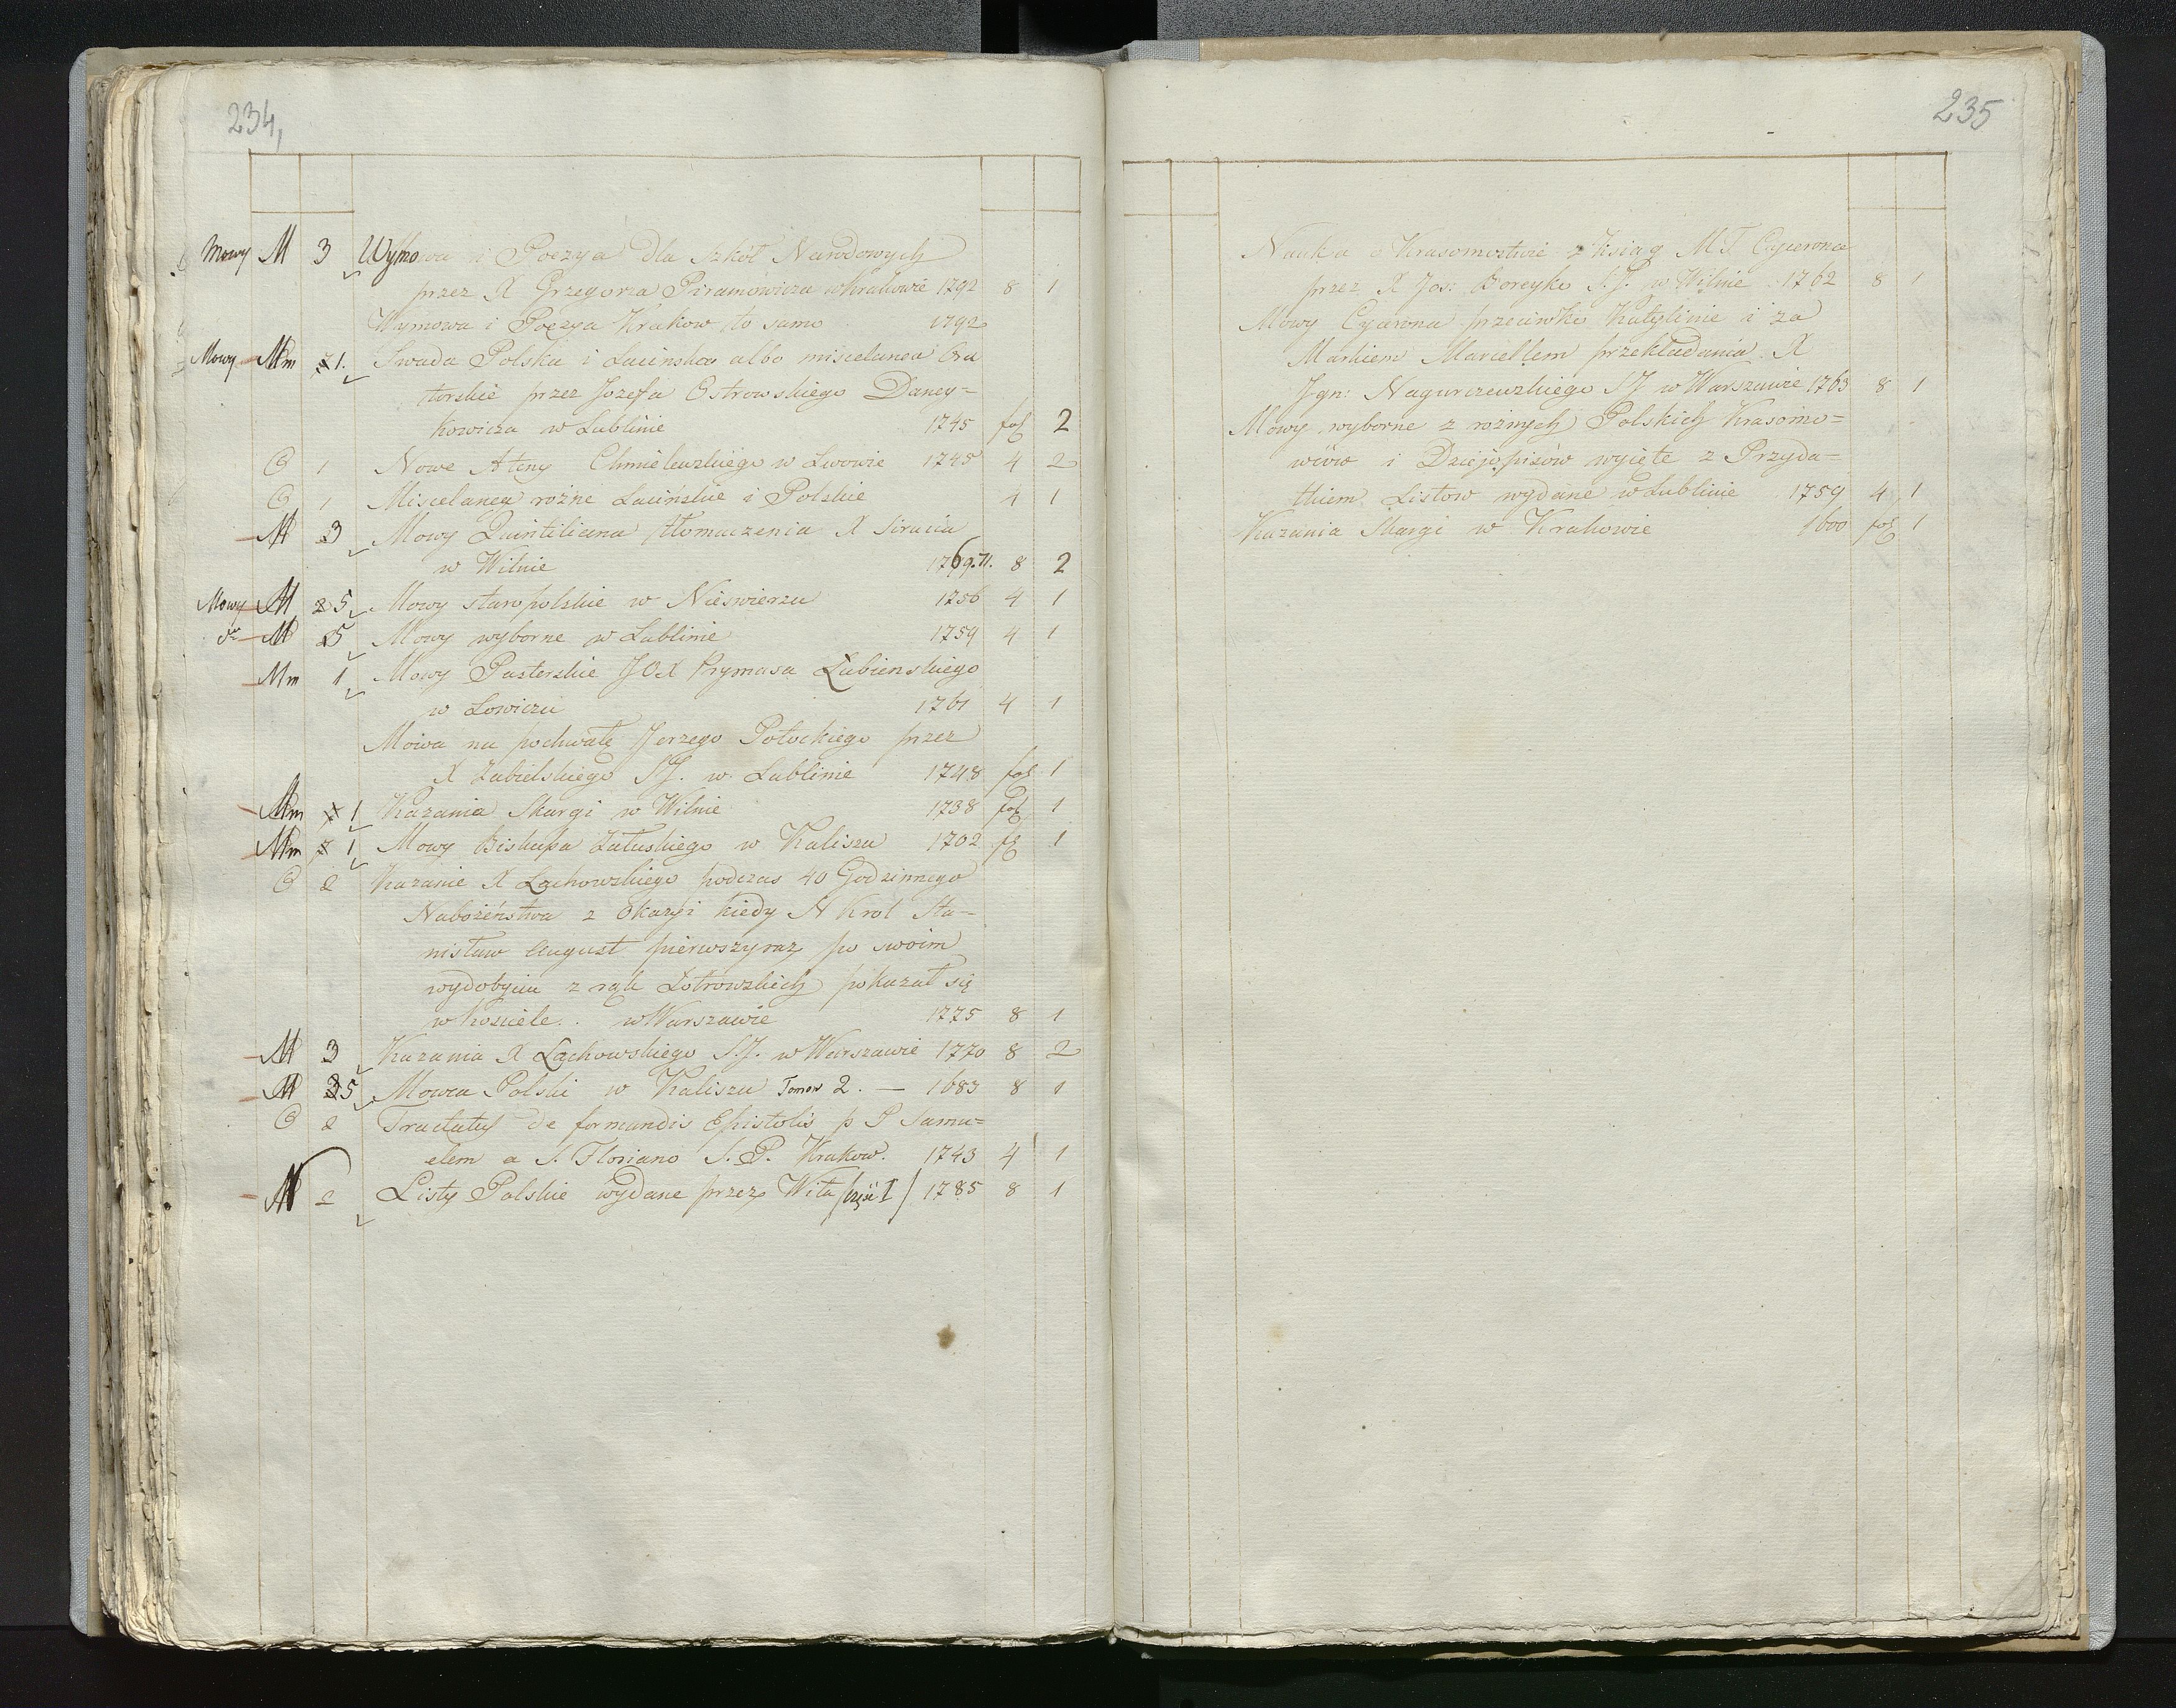 234,
Mowy M 3 Wymowa i Poezya dla Szkół Narodowych
przez X Grzegorza Piramowicza w Krakowie 1792 8 1
Wymowa i Poezya Krakow to samo 1792
Mowy Mm 1. Swada Polska i Łacinska albo miscelanea Ora
torskie przez Jozefa Ostrowskiego Daney=
kowicza w Lublinie 1745 fol 2
C 1 Nowe Ateny Chmielewskiego w Lwowie 1745 4 2
C 1 Miscelanea rożne Łacińskie i Polskie 4 1
M 3 Mowy Quintiliana tłomaczenia X Sirucia
w Wilnie 1769.71. 8 2
Mowy M 5 Mowy staropolskie w Nieswierzu 1756 4 1
do M 5 Mowy wyborne w Lublinie 1759 4 1
Mm 1 Mowy Pasterskie JOX Prymasa Łubienskiego
w Łowiczu 1761 4 1
Mowa na pochwałę Jerzego Potockiego przez
X Zubielskiego SJ. w Lublinie 1748 fol 1
Mm 1 Kazania Skargi w Wilnie 1738 fol 1
Mm 1 Mowy Biskupa Załuskiego w Kaliszu 1702 fol 1
C 2 Kazanie X Lachowskiego podczas 40 Godzinnego
Nabożeństwa z Okazyi kiedy N Krol Sta=
nisław August pierwszy raz po swoim
wydobyciu z rąk Łotrowskich pokazał się
w kosciele. w Warszawie 1775 8 1
M 3 Kazania X Lachowskiego S.J. w Warszawie 1770 8 2
M 5 Mowca Polski w Kaliszu Tomow 2. — 1683 8 1
C 2 Tractatus de formandis Epistolis p P Samu=
elem a S. Floriano S. P. Krakow. 1743 4 1
M 2 Listy Polskie wydane przez Wita /część I/ 1785 8 1
235
Nauka o Krasomostwie z Ksiąg M.T. Cycerona
przez X Jos: Boreyko S.J. w Wilnie 1762 8 1
Mowy Cycerona przeciwko Katylinie i za
Markiem Marcellem przekładania X
Jgn: Nagurczewskiego SJ w Warszawie 1763 8 1
Mowy wyborne z rożnych Polskich Krasomo=
wców i Dziejopisów wyięte z Przyda=
tkiem Listow wydane w Lublinie 1759 4 1
Kazania Skargi w Krakowie 1600 fol 1